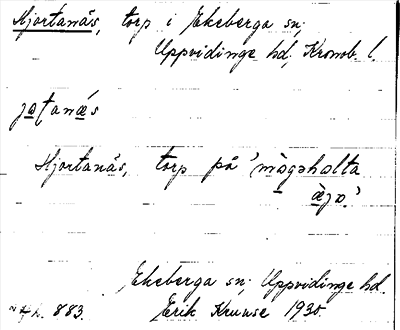 Hjortanäs, torp i Ekeberga sn;
Uppvidinge hd, Kronob. l.
jɑʈanǽs
Hjortanäs, torp på 'màgəhalta
ǽgo.'
Ekeberga sn; Uppvidinge hd.
883. Erik Kruuse 1930.